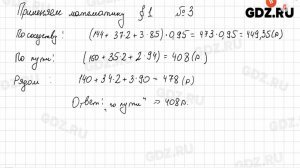 GDZ.RU
Применяем математику §1 №3
По соседству: (144 + 37·2 + 3·85)·0,95 = 473·0,95 = 449,35 (р)
По пути: (150 + 35·2 + 2·94) = 408 (р)
Рядом: 140 + 34·2 + 3·90 = 478 (р)
Ответ: „по пути“ 408 р.
GDZ.RU